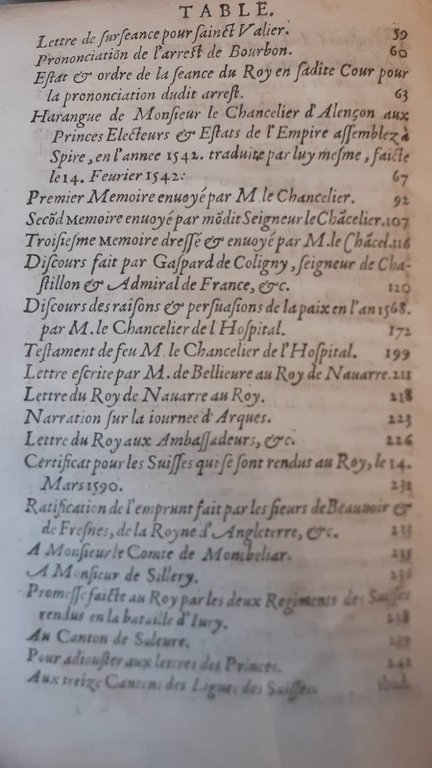 TABLE.
Lettre de surseance pour sainct Valier. 59
Prononciation de l'arrest de Bourbon. 60
Estat & ordre de la seance du Roy en sadite Cour pour
la prononciation dudit arrest. 63
Harangue de Monsieur le Chancelier d'Alençon aux
Princes Electeurs & Estats de l'Empire assemblez à
Spire, en l'annee 1542. traduite par luy mesme, faicte
le 14. Feurier 1542: 67
Premier Memoire enuoyé par M. le Chancelier. 92
Secõd Memoire enuoyé par mõdit Seigneur le Chãcelier. 107
Troisiesme Memoire dressé & enuoyé par M. le Chãcel. 116
Discours fait par Gaspard de Coligny, seigneur de Cha-
stillon & Admiral de France, &c. 120
Discours des raisons & persuasions de la paix en l'an 1568.
par M. le Chancelier de l'Hospital. 172
Testament de feu M. le Chancelier de l'Hospital. 199
Lettre escrite par M. de Bellieure au Roy de Nauarre. 211
Lettre du Roy de Nauarre au Roy. 218
Narration sur la iournee d'Arques. 223
Lettre du Roy aux Ambassadeurs, &c. 226
Certificat pour les Suisses qui se sont rendus au Roy, le 14.
Mars 1590. 231
Ratification de l'emprunt fait par les sieurs de Beauuoir &
de Fresnes, de la Royne d'Angleterre, &c. 233
A Monsieur le Comte de Montbeliar. 235
A Monsieur de Sillery. 236
Promesse faicte au Roy par les deux Regiments des Suisses
rendus en la bataille d'Iury. 238
Au Canton de Soleure. 239
Pour adiouster aux lettres des Princes. 241
Aux treize Cantons des Ligues des Suisses. ibid.